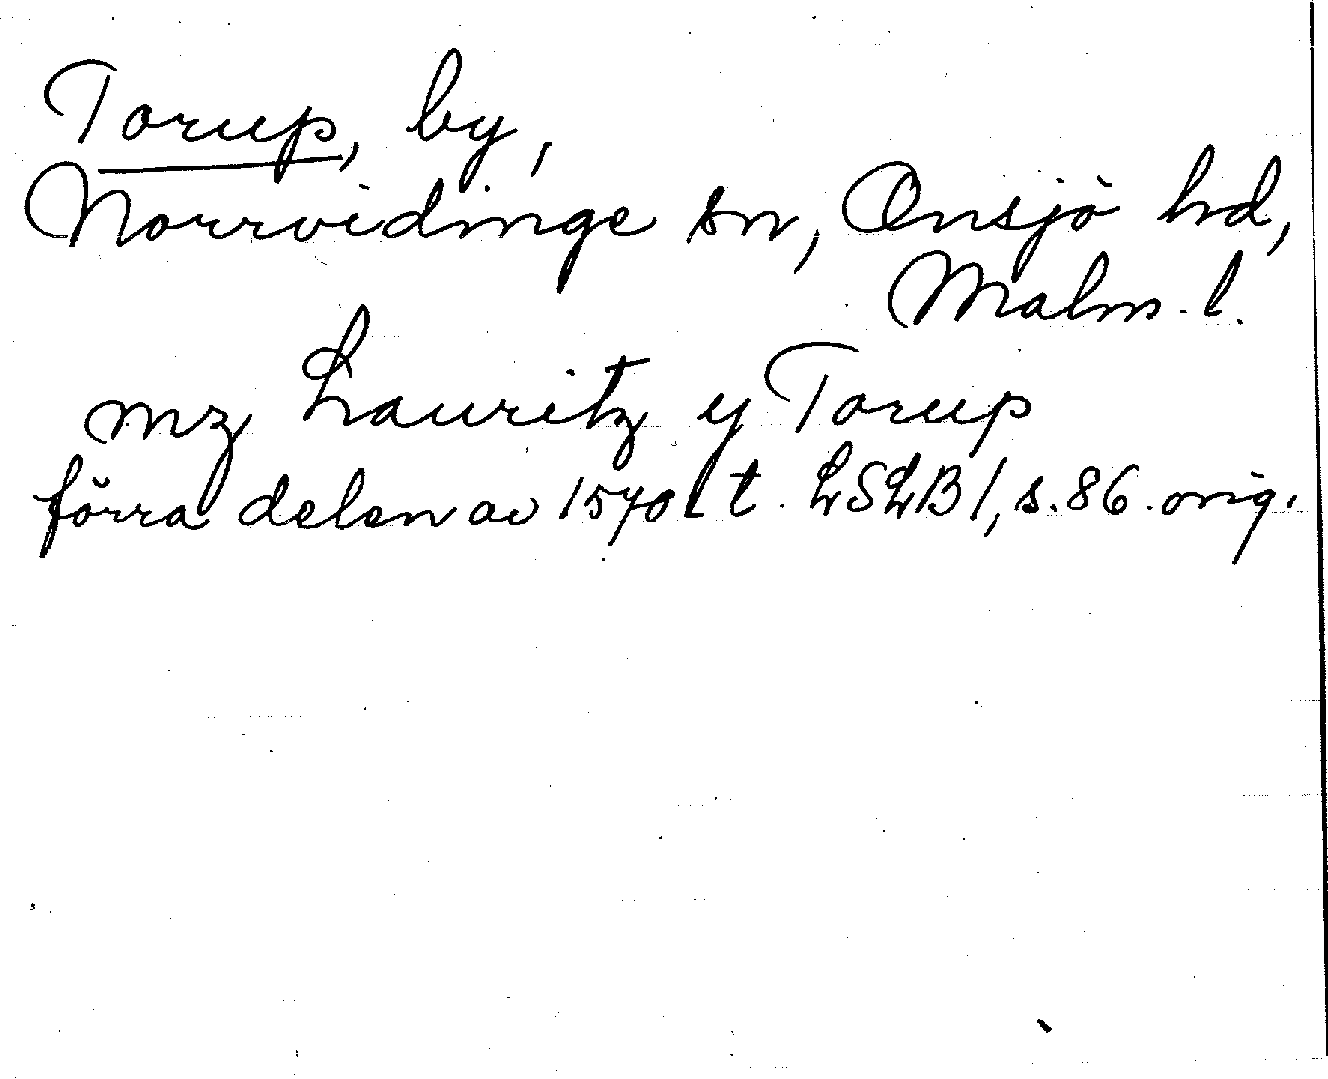 Torup, by,
Norrvidinge sn, Onsjö hd,
Malm. l.
mz Lauritz y Torup
förra delen av 1570 t. t. LSLB 1, s. 86. orig.